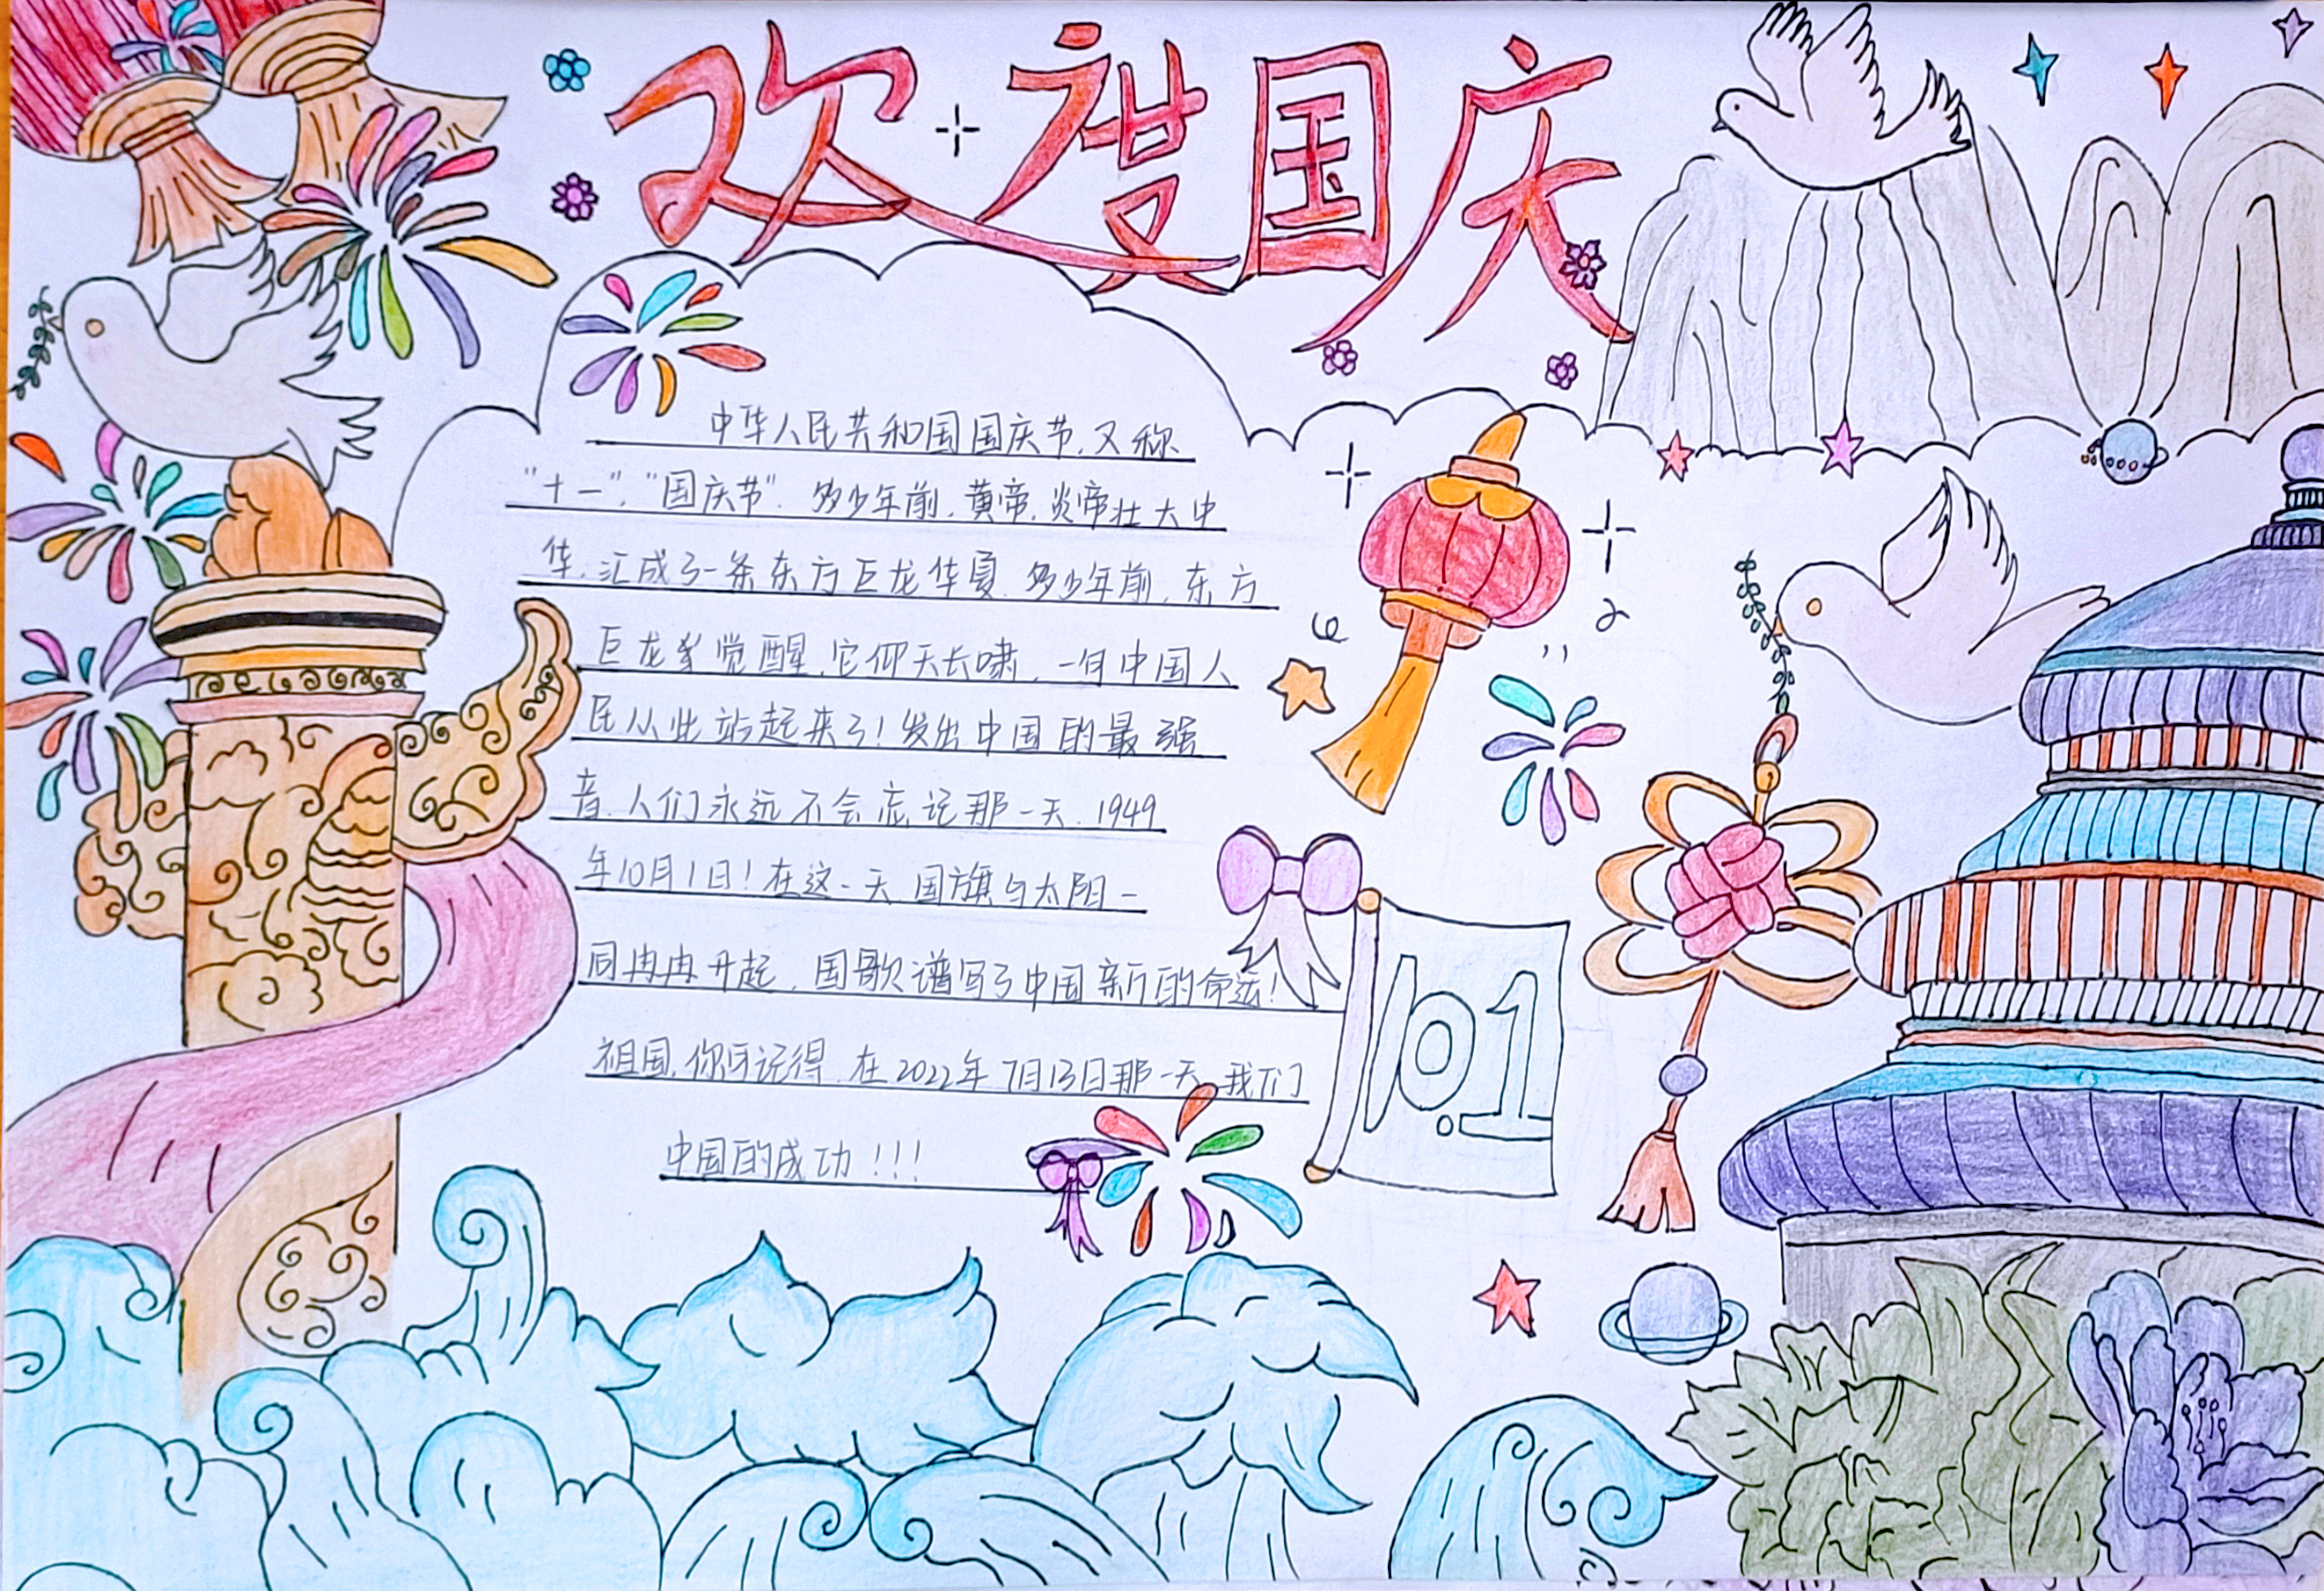 欢度国庆
中华人民共和国国庆节,又称
"十一","国庆节".多少年前,黄帝,炎帝壮大中
华,汇成了一条东方巨龙华夏.多少年前,东方
巨龙 觉醒,它仰天长啸,一句中国人
民从此站起来了!发出中国的最强
音.人们永远不会忘记那一天.1949
年10月1日!在这一天.国旗与太阳一
同冉冉升起,国歌谱写了中国新的命运!
祖国,你可记得.在2022年7月13日那一天,我们
中国的成功!!!
10.1